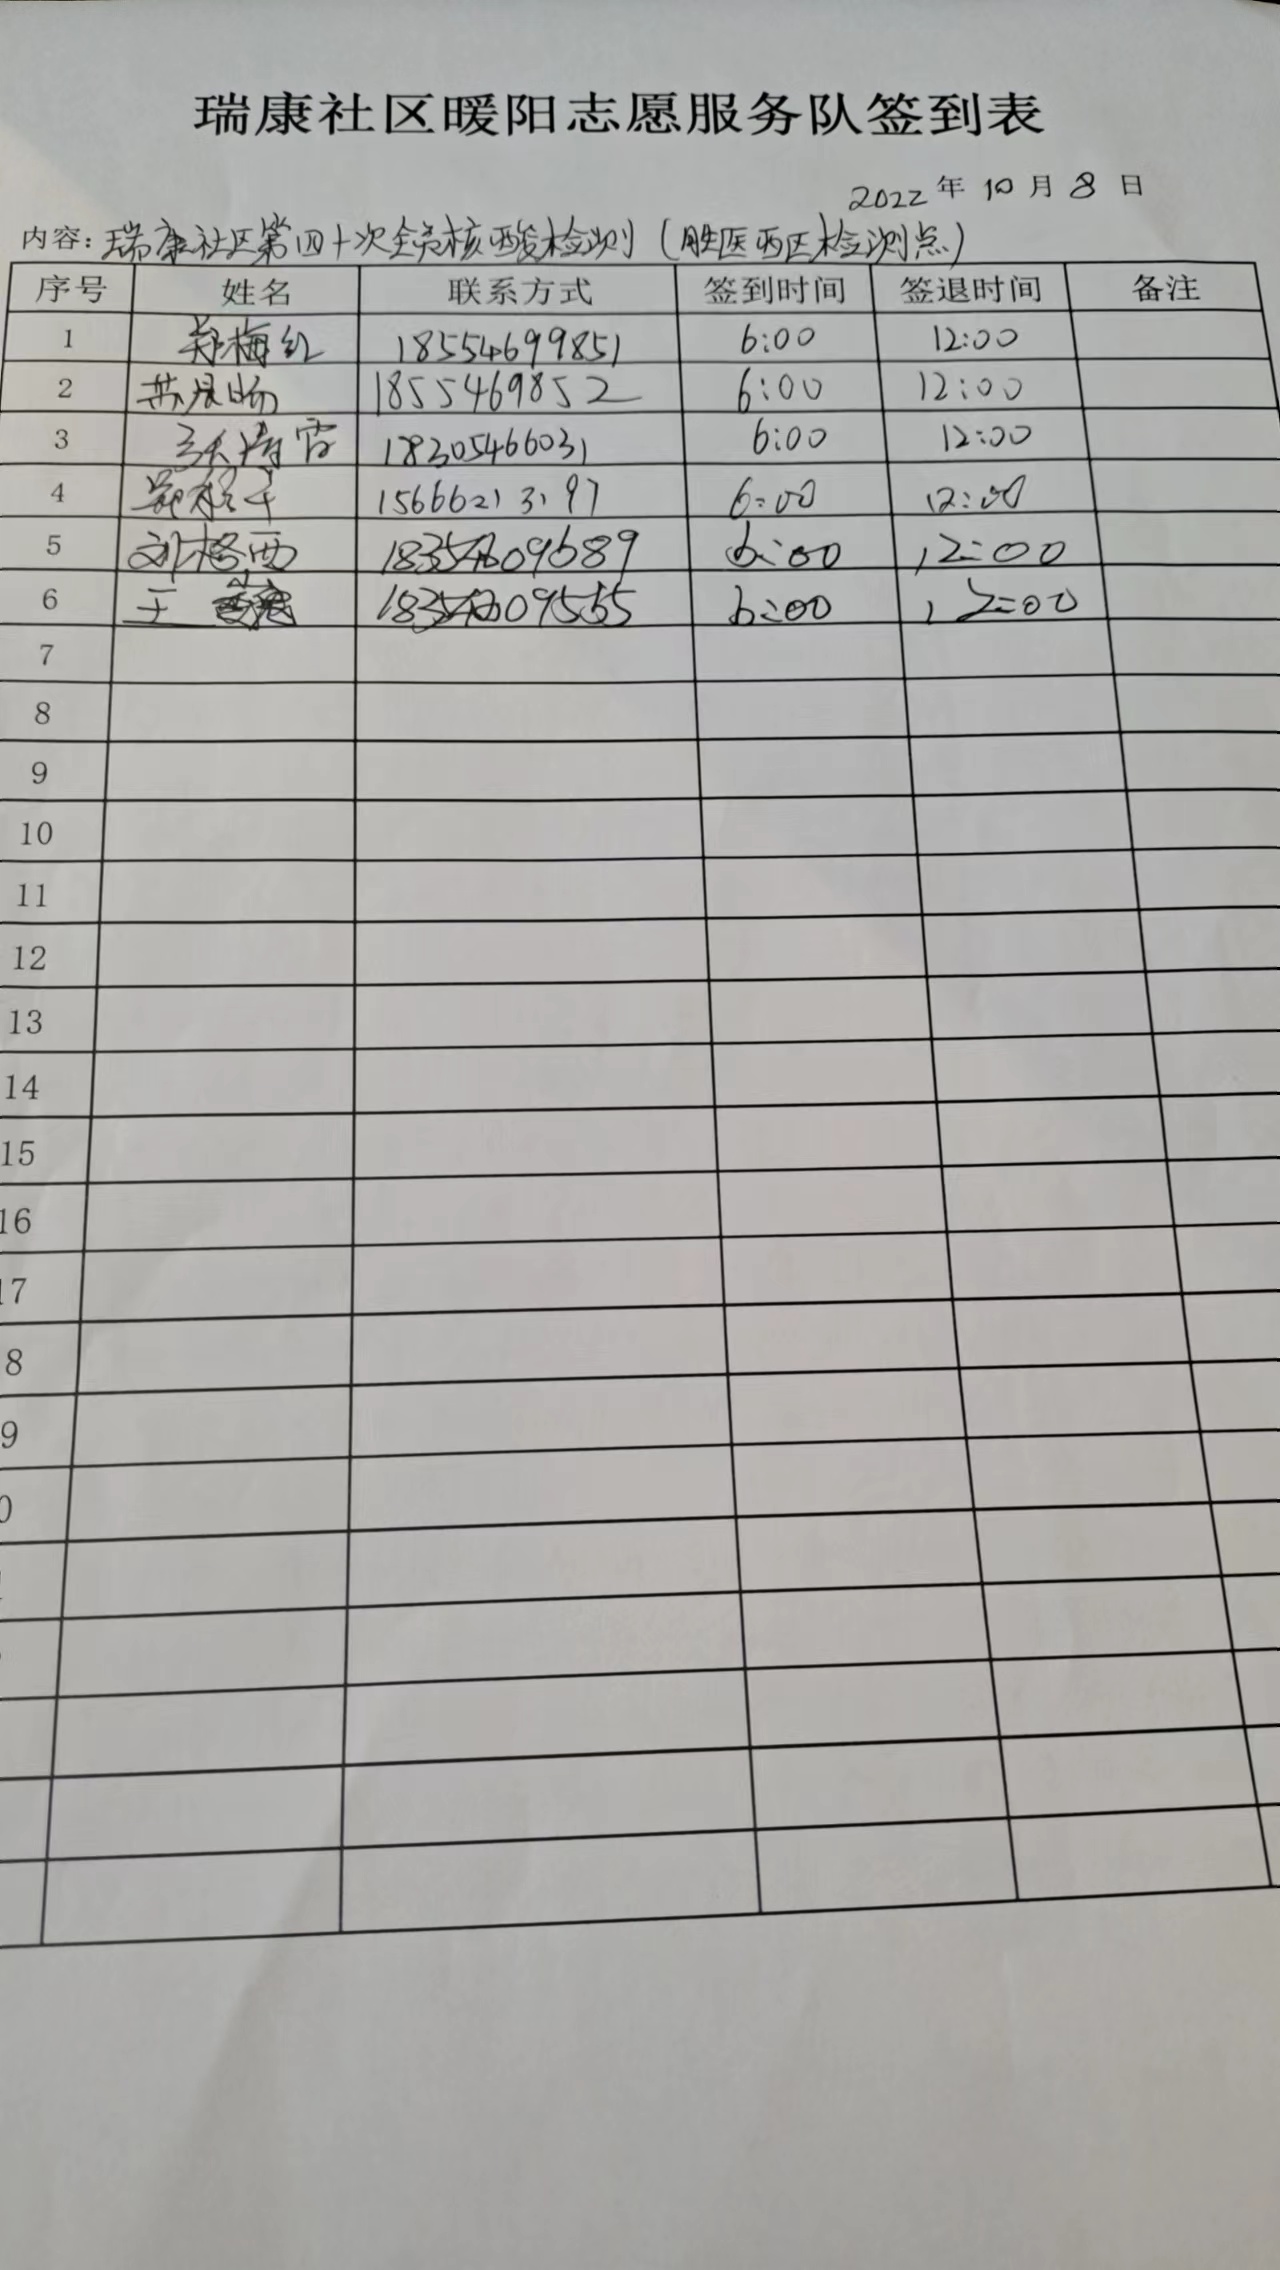 瑞康社区暖阳志愿服务队签到表
2022年10月8日
内容：瑞康社区第四十次全员核酸检测（胜医西区检测点）
序号 姓名 联系方式 签到时间 签退时间 备注
1 郑梅红 18554699851 6:00 12:00
2 1855469852 6:00 12:00
3 18305466031 6:00 12:00
4 15666213197 6:00 12:00
5 刘格西 6:00 12:00
6 王 6:00 12:00
7
8
9
10
11
12
13
14
15
16
17
8
9
0